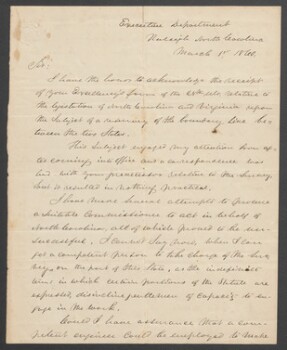 Executive Department
Raleigh North Carolina
March 1st
Sir:
I have the honor to acknowledge the receipt
of your Excellency's favor of the relative to
the legislation of North Carolina and Virginia upon
the subject of a resurvey of the boundary line be-
tween the two States.
This subject engaged my attention soon af-
ter coming into office and a correspondence was
had with your predecessor relative to the survey
but it resulted in nothing practical.
I have made several attempts to procure
a suitable Commissioner to act in behalf of
North Carolina, all of which proved to be un-
successful. I cannot say now when I can
get a competent person to take charge of the sur-
vey on the part of this State, as the
in which certain provisions of the Statute are
expressed gentlemen of capacity to en-
gage in the work.
Could I have assurance that a com-
petent engineer could be employed to make